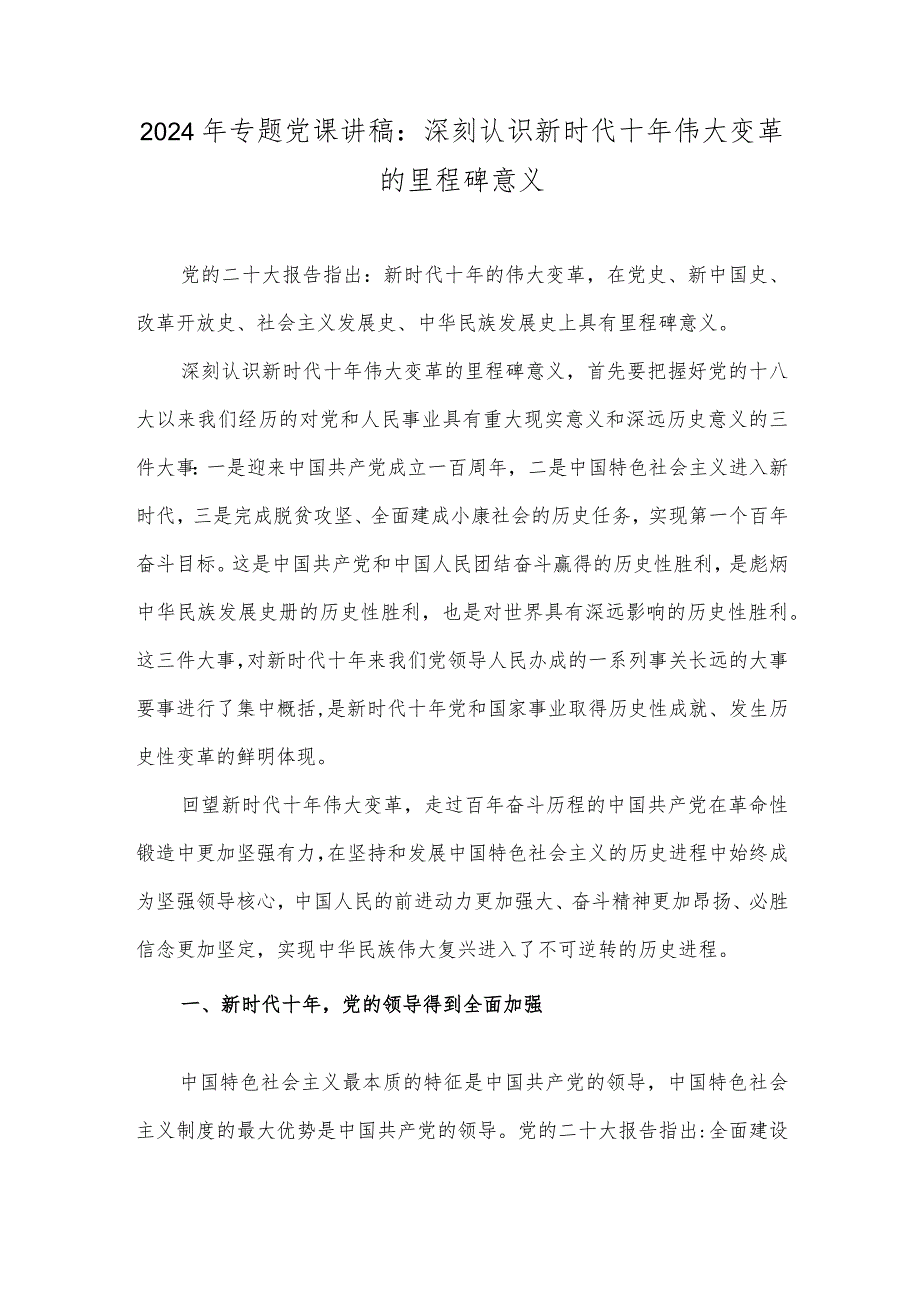 2024年专题党课讲稿：深刻认识新时代十年伟大变革
的里程碑意义
党的二十大报告指出：新时代十年的伟大变革，在党史、新中国史、
改革开放史、社会主义发展史、中华民族发展史上具有里程碑意义。
深刻认识新时代十年伟大变革的里程碑意义，首先要把握好党的十八
大以来我们经历的对党和人民事业具有重大现实意义和深远历史意义的三
件大事：一是迎来中国共产党成立一百周年，二是中国特色社会主义进入新
时代，三是完成脱贫攻坚、全面建成小康社会的历史任务，实现第一个百年
奋斗目标。这是中国共产党和中国人民团结奋斗赢得的历史性胜利，是彪炳
中华民族发展史册的历史性胜利，也是对世界具有深远影响的历史性胜利。
这三件大事，对新时代十年来我们党领导人民办成的一系列事关长远的大事
要事进行了集中概括,是新时代十年党和国家事业取得历史性成就、发生历
史性变革的鲜明体现。
回望新时代十年伟大变革，走过百年奋斗历程的中国共产党在革命性
锻造中更加坚强有力,在坚持和发展中国特色社会主义的历史进程中始终成
为坚强领导核心，中国人民的前进动力更加强大、奋斗精神更加昂扬、必胜
信念更加坚定，实现中华民族伟大复兴进入了不可逆转的历史进程。
一、新时代十年，党的领导得到全面加强
中国特色社会主义最本质的特征是中国共产党的领导，中国特色社会
主义制度的最大优势是中国共产党的领导。党的二十大报告指出:全面建设